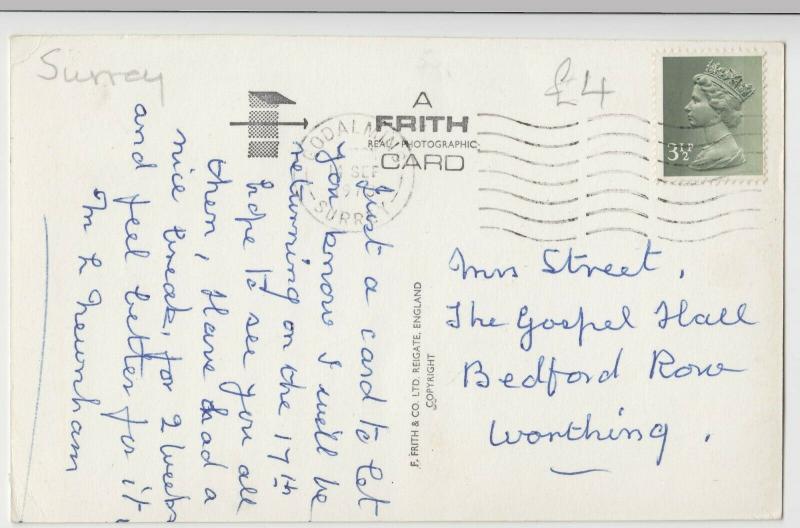 Surrey
£4
A
FRITH
REAL PHOTOGRAPHIC
CARD
GODALMING
SEP
197
SURREY
3½P
Just a card to let
you know I will be
returning on the 17th
hope to see you all
then, Have had a
nice break, for 2 weeks
and feel better for it,
Mrs Street,
The Gospel Hall
Bedford Row
Worthing.
F. FRITH & CO. LTD. REIGATE, ENGLAND
COPYRIGHT